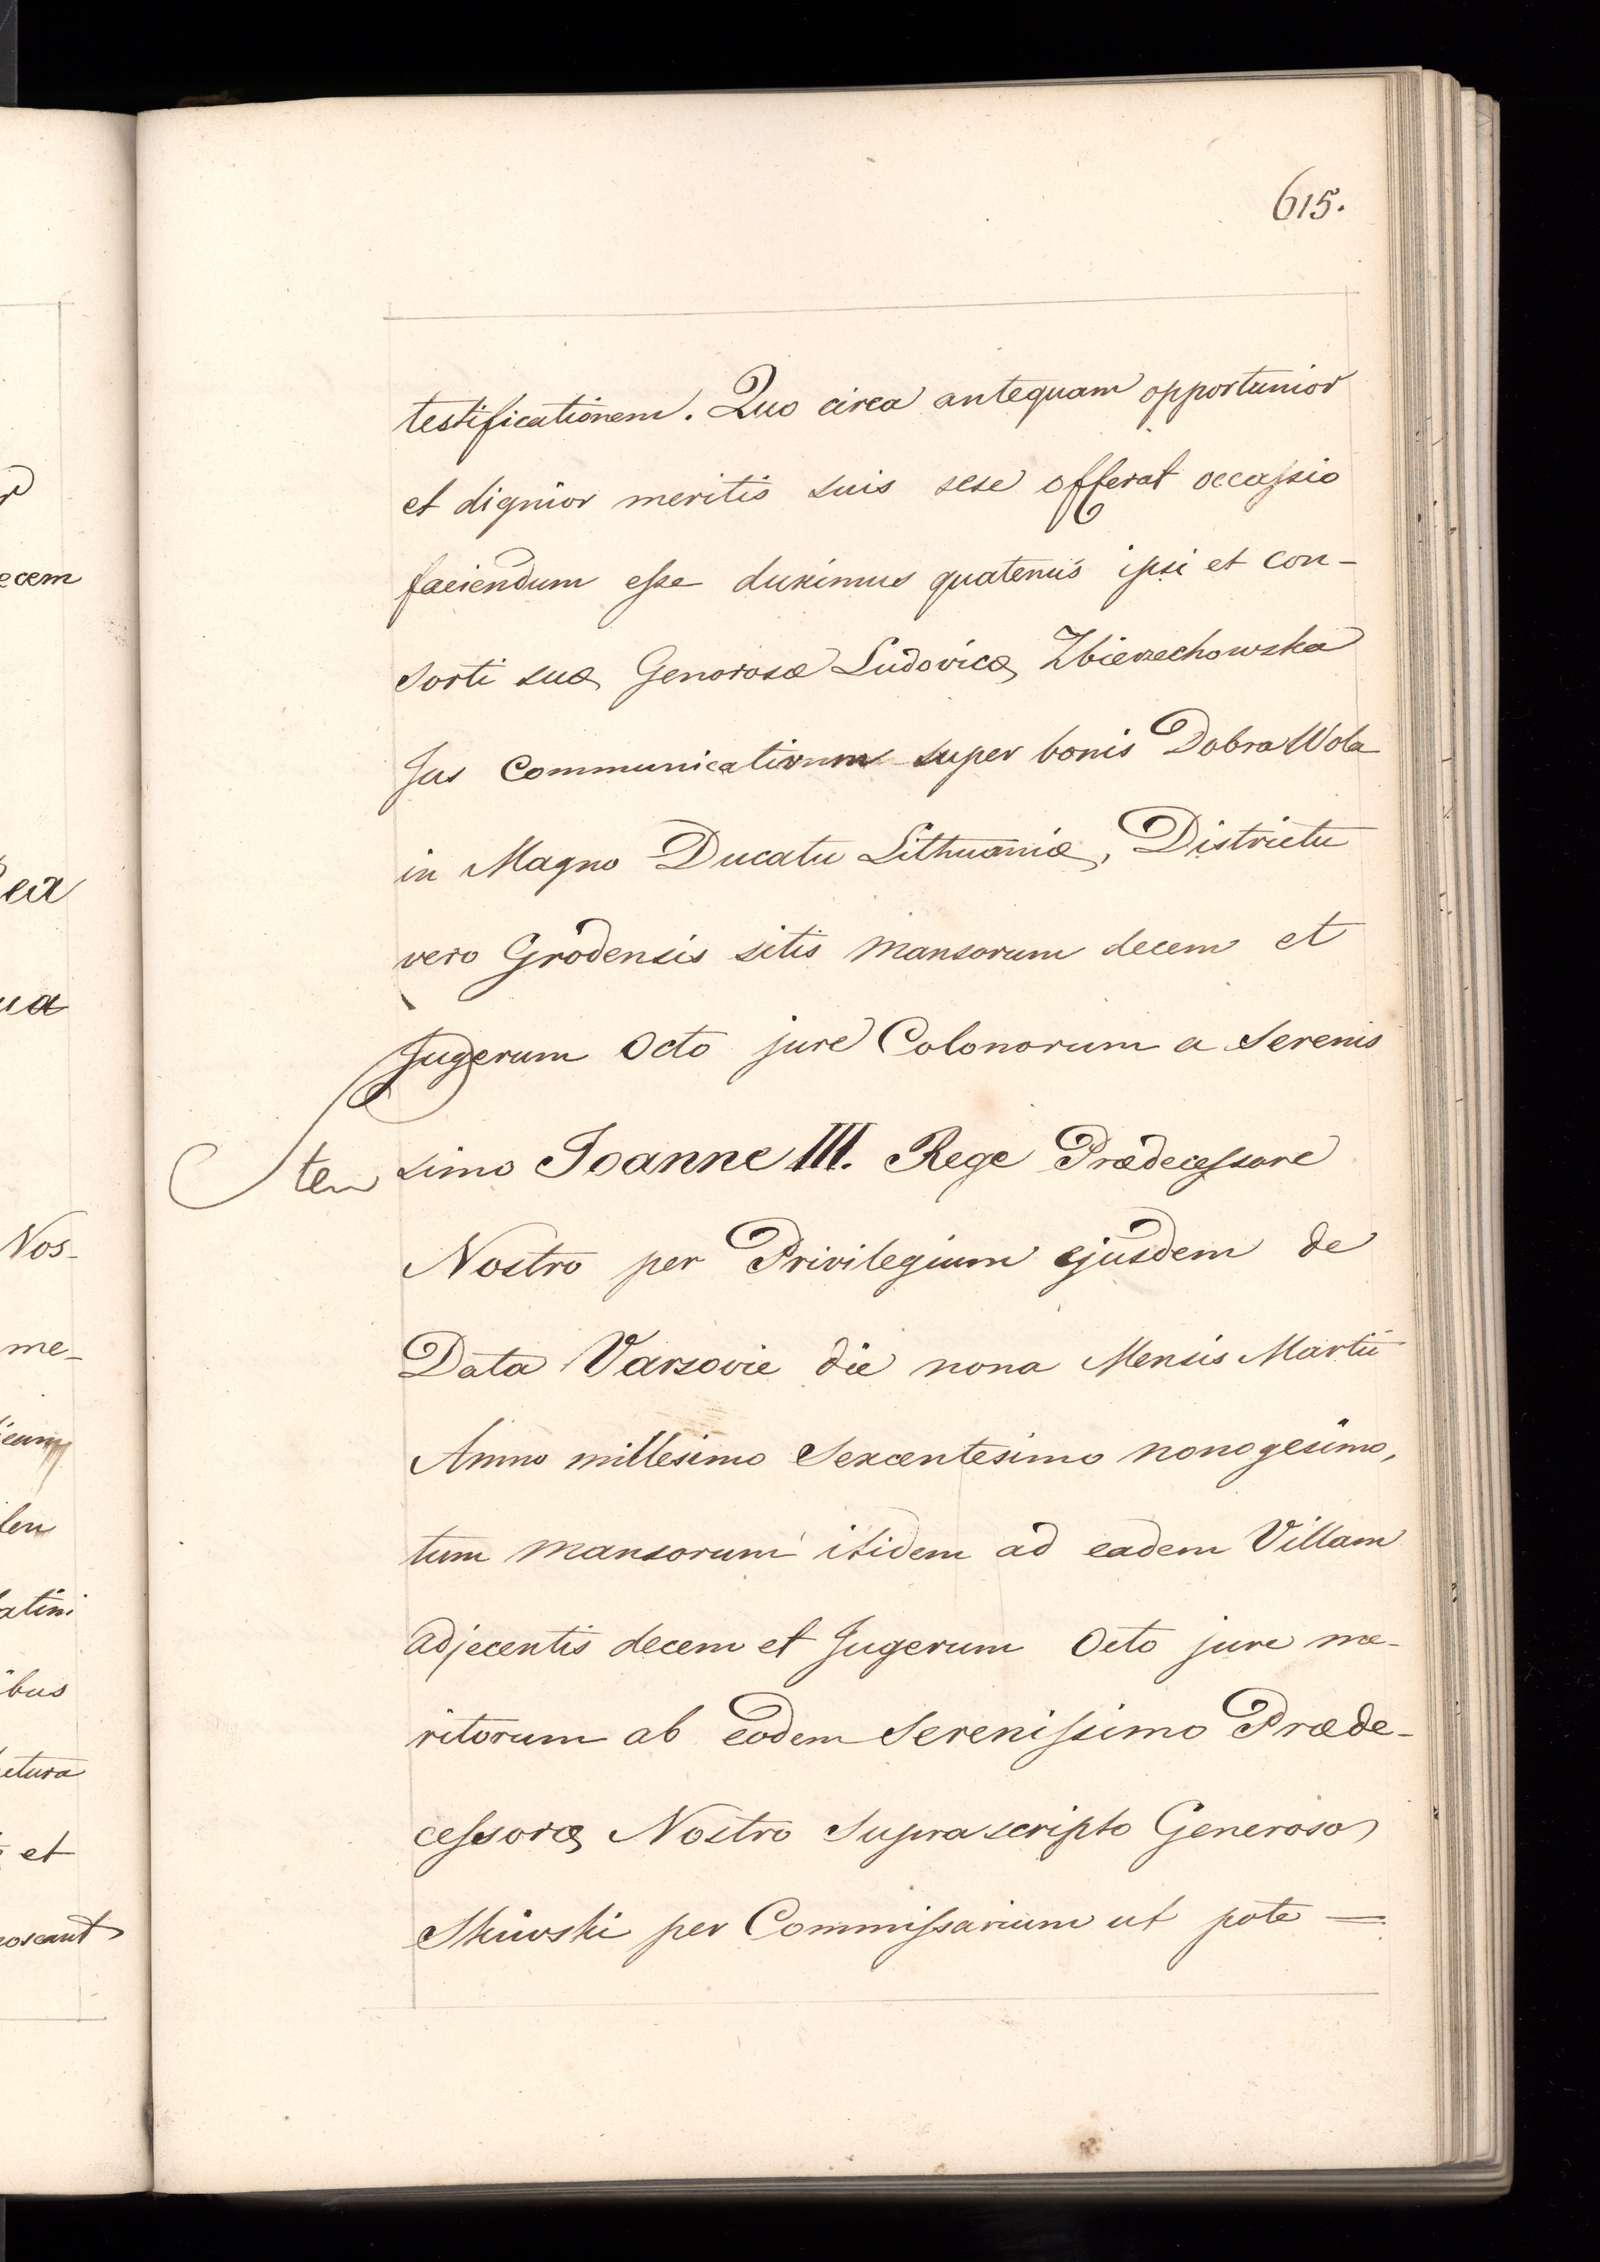 615.
testificationem. Quo circa antequam opportunior
et dignior meritis suis sese offerat occassio
faciendum esse duximus quatenus ipsi et con-
sorti suæ Generosæ Ludovicæ Zbierzchowska
Jus Communicativum super bonis Dobra Wola
in Magno Ducatu Lithuaniæ, Districtu
vero Grodensis sitis mansorum decem et
Jugerum Octo jure Colonorum a Serenis
ten
simo Joanne III. Rege Prædecessore
Nostro per Privilegium ejusdem de
Data Varsovie die nona Mensis Martii
Anno millesimo Sexcentesimo nonogesimo,
tum mansorum itidem ad eadem Villam
adjecentis decem et Jugerum Octo jure me-
ritorum ab eodem Serenissimo Præde-
cessoræ Nostro Supra scripto Generoso
Skiwski per Commissarium ut pote =
r
ecem
ua
Nos-
me-
len
latini
ibus
etura
et